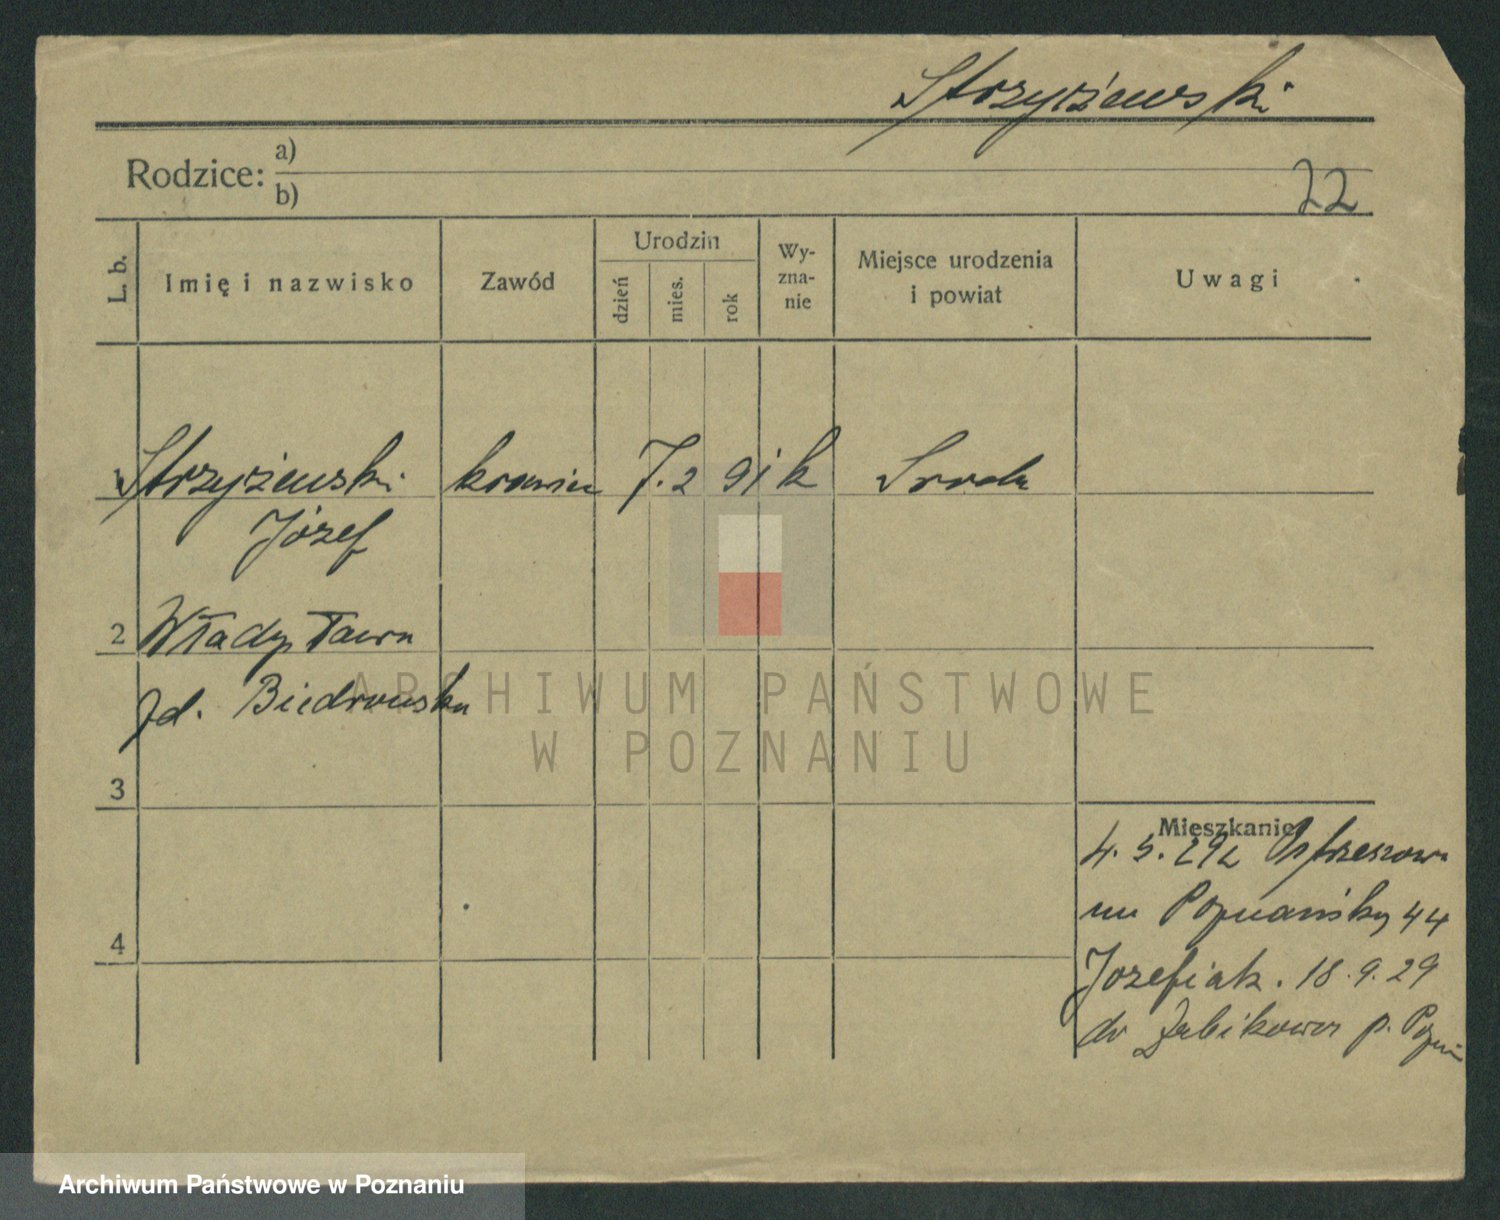 Strzyżewski
Rodzice: a)
b)
22
L. b.
Imię i nazwisko
Zawód
Urodzin
dzień
mies.
rok
Wy-
zna-
nie
Miejsce urodzenia
i powiat
Uwagi
1 Strzyżewski krawiec 7. 2 91 k Środa
Józef
2 Władysława
zd. Biedrowska
3
4
Mieszkanie
4. 5. 29 z
Poznański 44
Józefiak. 18. 9. 29
do Żabikowa p. Pozn
ARCHIWUM PAŃSTWOWE
W POZNANIU
Archiwum Państwowe w Poznaniu